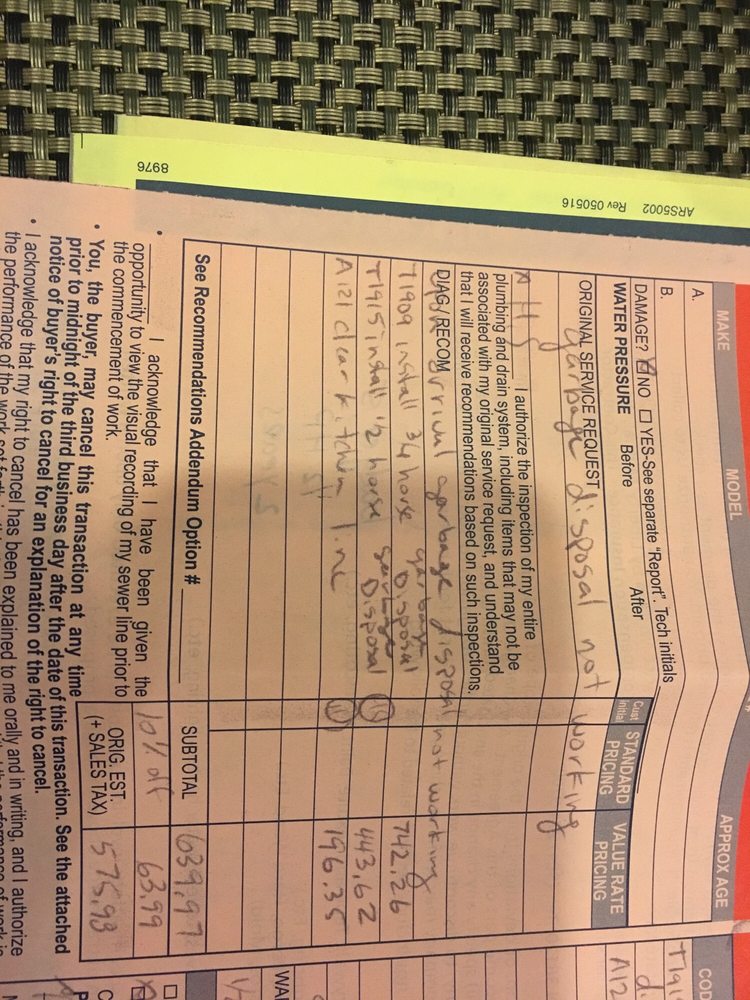 MAKE MODEL APPROX AGE
A.
B.
DAMAGE? NO YES-See separate "Report". Tech initials
WATER PRESSURE Before After
Cust Initial STANDARD PRICING VALUE RATE PRICING
ORIGINAL SERVICE REQUEST
garbage disposal not working
I authorize the inspection of my entire
plumbing and drain system, including items that may not be
associated with my original service request, and understand
that I will receive recommendations based on such inspections.
DIAG/RECOM
garbage disposal not working
T1909 install 3/4 horse garbage Disposal 742.26
T1915 install 1/2 horse garbage Disposal 443.62
A121 clear kitchen line 196.35
See Recommendations Addendum Option #
SUBTOTAL 639.97
10% off 63.99
ORIG. EST. (+ SALES TAX) 575.98
• I acknowledge that I have been given the
opportunity to view the visual recording of my sewer line prior to
the commencement of work.
• You, the buyer, may cancel this transaction at any time
prior to midnight of the third business day after the date of this transaction. See the attached
notice of buyer's right to cancel for an explanation of the right to cancel.
• I acknowledge that my right to cancel has been explained to me orally and in writing, and I authorize
the performance of the work set forth
COD
T191
A12
WAR
8976
ARS5002 Rev 050516